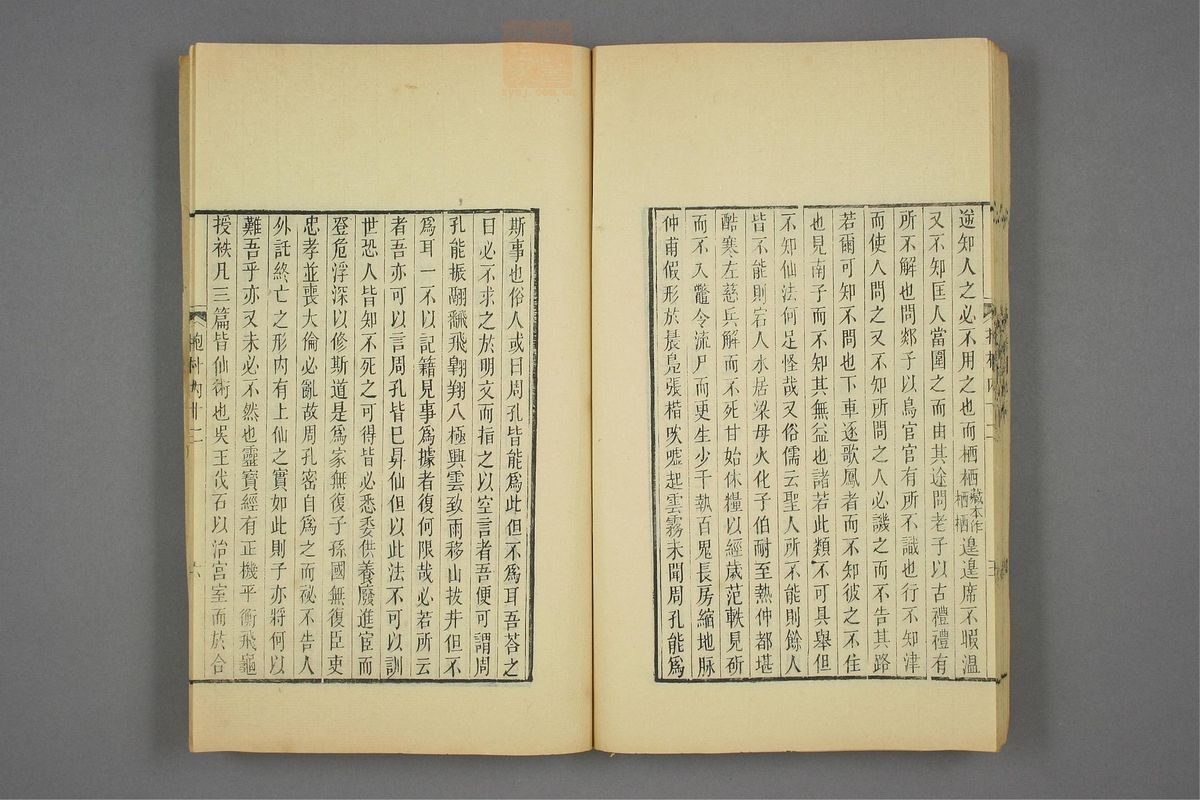 逆知人之必不用之也而栖栖藏本作栖栖遑遑席不暇溫
又不知匡人當圍之而由其途問老子以古禮禮有
所不解也問郯子以鳥官官有所不識也行不知津
而使人問之又不知所問之人必譏之而不告其路
若爾可知不問也下車逐歌鳳者而不知彼之不住
也見南子而不知其無益也諸若此類不可具舉但
不知仙法何足怪哉又俗儒云聖人所不能則餘人
皆不能則宕人水居梁母火化子伯耐至熱仲都堪
酷寒左慈兵解而不死甘始休糧以經歲范軼見斫
而不入鼈令流尸而更生少千執百鬼長房縮地脉
仲甫假形於晨鳧張楷吹噓起雲霧未聞周孔能爲
斯事也俗人或曰周孔皆能爲此但不爲耳吾荅之
曰必不求之於明文而指之以空言者吾便可謂周
孔能振翮翻飛翺翔八極興雲致雨移山拔井但不
爲耳一不以記籍見事爲據者復何限哉必若所云
者吾亦可以言周孔皆已昇仙但以此法不可以訓
世恐人皆知不死之可得皆必悉委供養廢進宦而
登危浮深以修斯道是爲家無復子孫國無復臣吏
忠孝並喪大倫必亂故周孔密自爲之而祕不告人
外託終亡之形內有上仙之實如此則子亦將何以
難吾乎亦又未必不然也靈寶經有正機平衡飛龜
授袟凡三篇皆仙術也吳王伐石以治宮室而於合
抱朴內十二
六